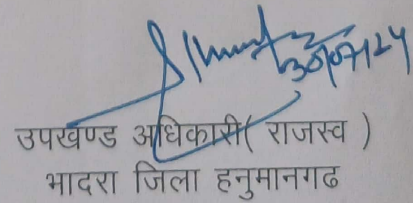 30/07/24
उपखण्ड अधिकारी( राजस्व )
भादरा जिला हनुमानगढ